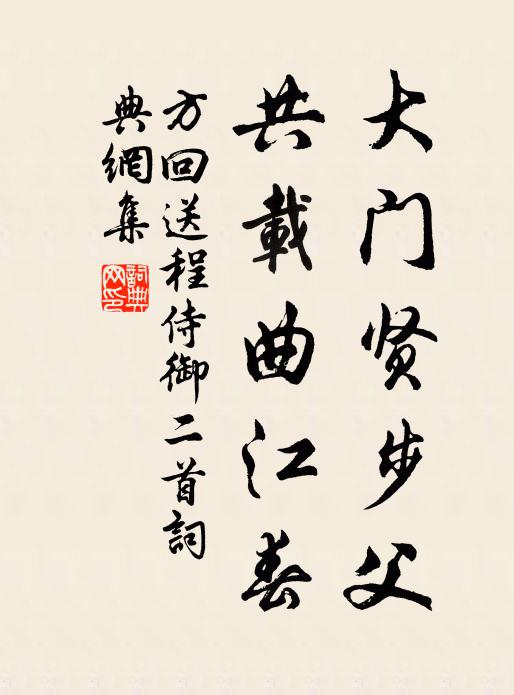 大门贤步父
共載曲江春
方回送程侍御二首詞
典網集
詞典网印